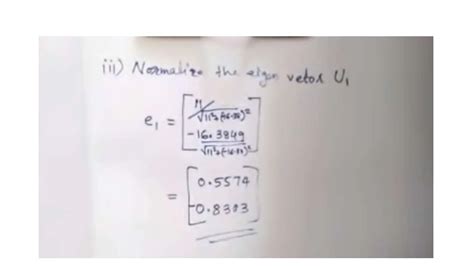 iii) Normalize the eigen vetor U₁
e₁ = [ 11/√11²+(-16.38)²
-16.3849/√11²+(-16.38)² ]
= [ 0.5574
-0.8303 ]